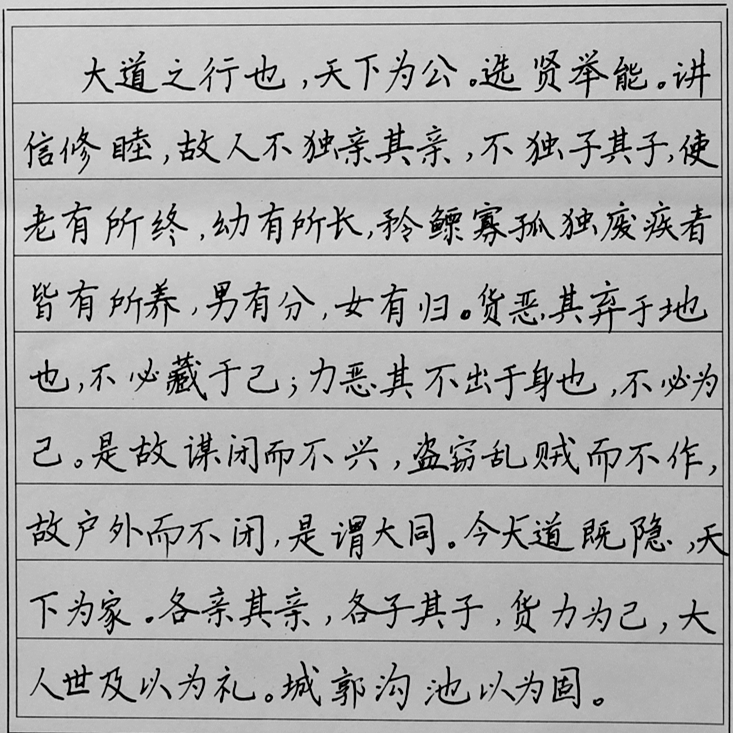 大道之行也,天下为公。选贤举能。讲
信修睦,故人不独亲其亲,不独子其子,使
老有所终,幼有所长,矜鳏寡孤独废疾者
皆有所养,男有分,女有归。货恶其弃于地
也,不必藏于己;力恶其不出于身也,不必为
己。是故谋闭而不兴,盗窃乱贼而不作,
故户外而不闭,是谓大同。今大道既隐,天
下为家。各亲其亲,各子其子,货力为己,大
人世及以为礼。城郭沟池以为固。